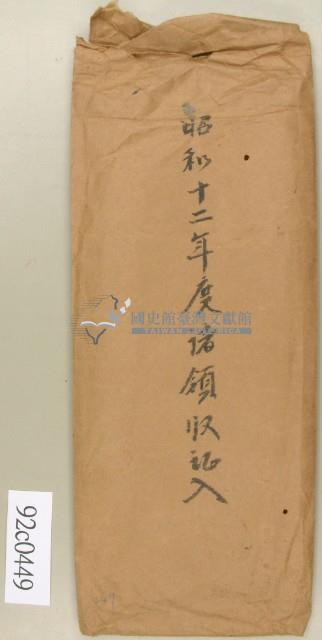 昭和十二年度諸領収証入
國史館臺灣文獻館
TAIWAN HISTORICA
92c0449